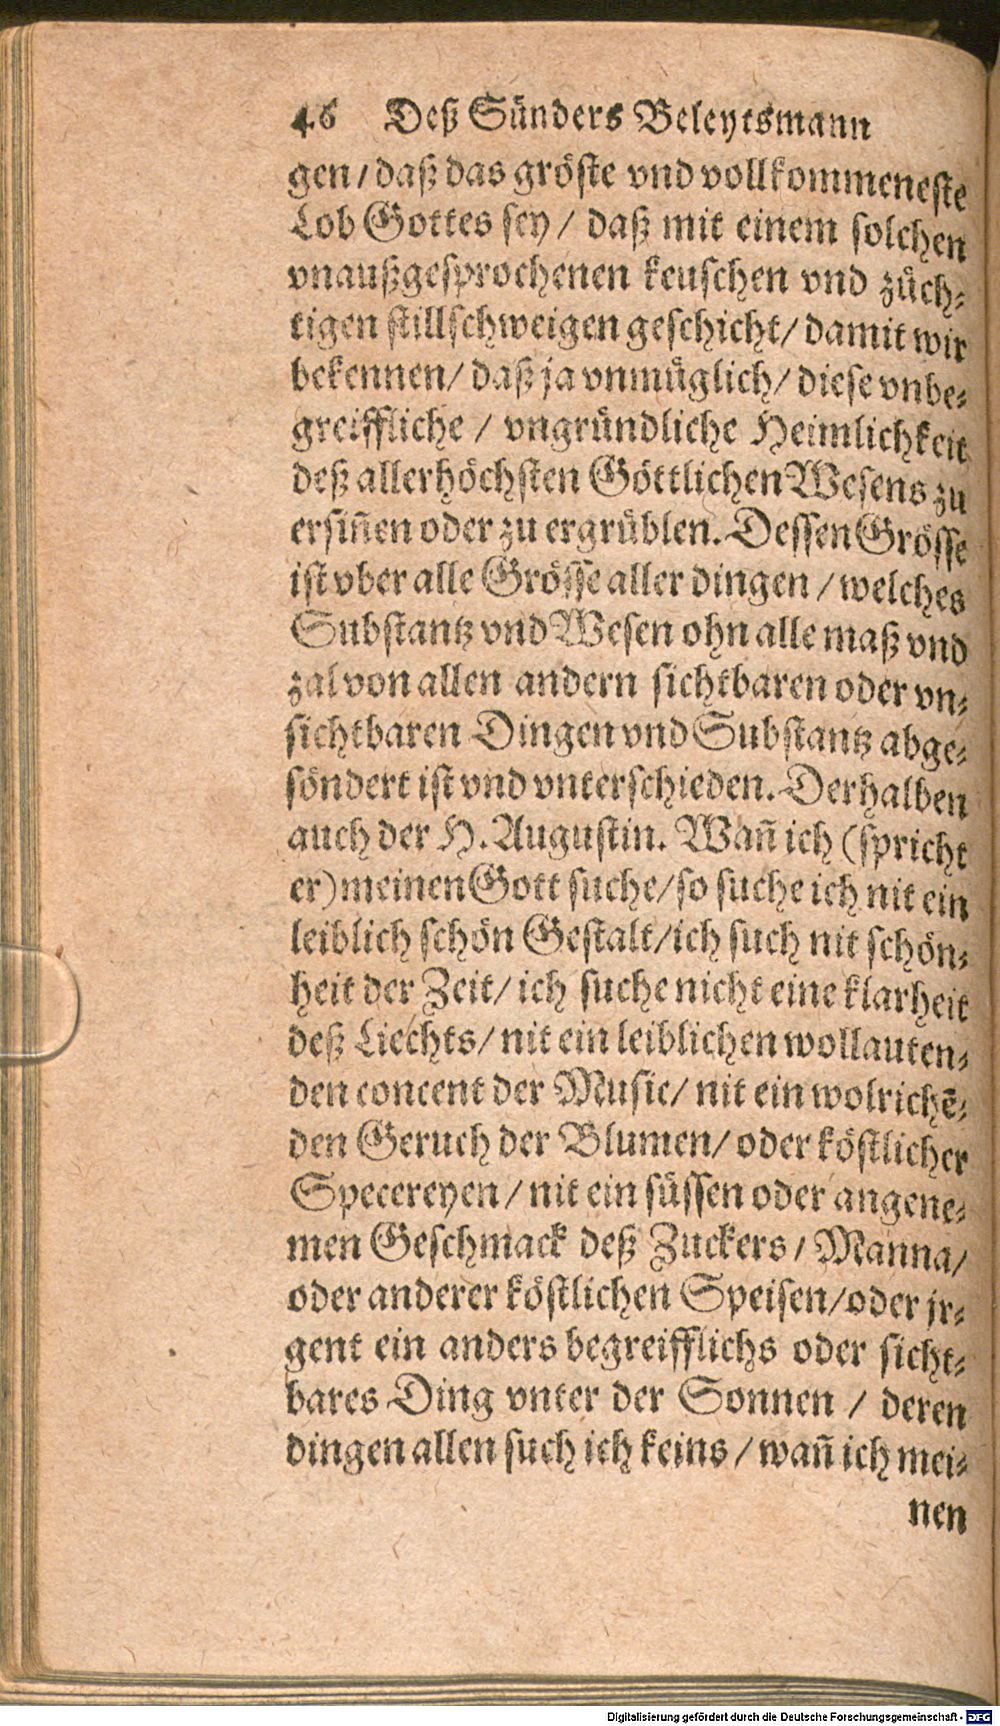 46 Deß Sünders Beleytsmann
gen/ daß das gröste vnd vollkommeneste
Lob Gottes sey/ daß mit einem solchen
vnaußgesprochenen keuschen vnd züch⸗
tigen stillschweigen geschicht/ damit wir
bekennen/ daß ja vnmüglich/ diese vnbe⸗
greiffliche / vngründliche Heimlichkeit
deß allerhöchsten Göttlichen Wesens zu
ersiñen oder zu ergrüblen. Dessen Grösse
ist vber alle Grösse aller dingen / welches
Substantz vnd Wesen ohn alle maß vnd
zal von allen andern sichtbaren oder vn⸗
sichtbaren Dingen vnd Substantz abge⸗
söndert ist vnd vnterschieden. Derhalben
auch der H. Augustin. Wañ ich (spricht
er) meinen Gott suche/ so suche ich nit ein
leiblich schön Gestalt/ ich such nit schön⸗
heit der Zeit/ ich suche nicht eine klarheit
deß Liechts/ nit ein leiblichen wollauten⸗
den concent der Music/ nit ein wolrichẽ⸗
den Geruch der Blumen/ oder köstlicher
Specereyen / nit ein süssen oder angene⸗
men Geschmack deß Zuckers / Manna/
oder anderer köstlichen Speisen/ oder jr⸗
gent ein anders begreifflichs oder sicht⸗
bares Ding vnter der Sonnen / deren
dingen allen such ich keins / wañ ich mei⸗
nen
Digitalisierung gefördert durch die Deutsche Forschungsgemeinschaft - DFG